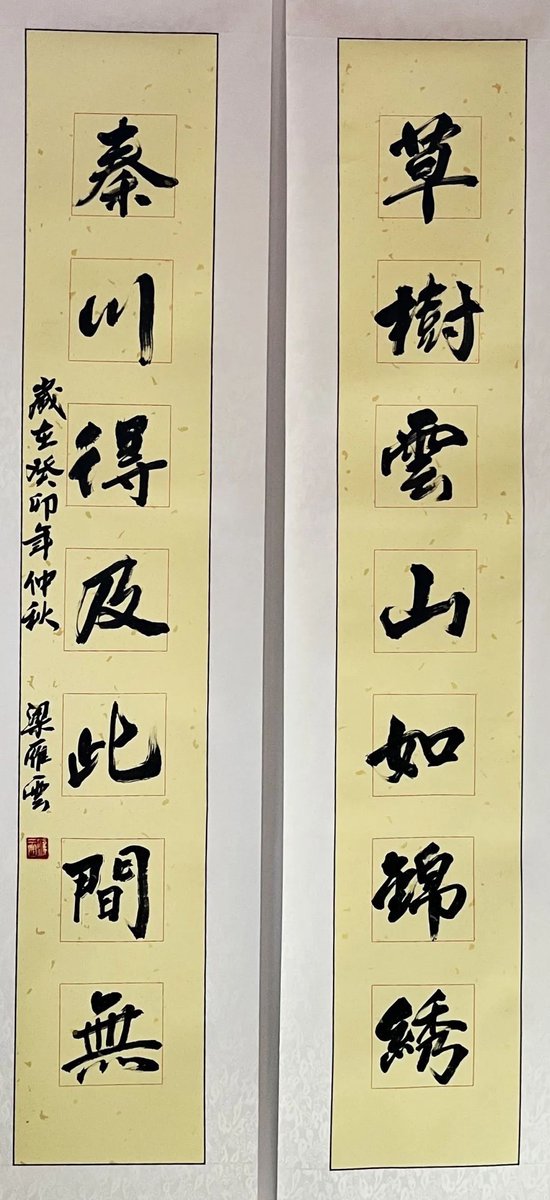 草樹雲山如錦綉
秦川得及此間無
歲在癸卯年仲秋 梁雁雲